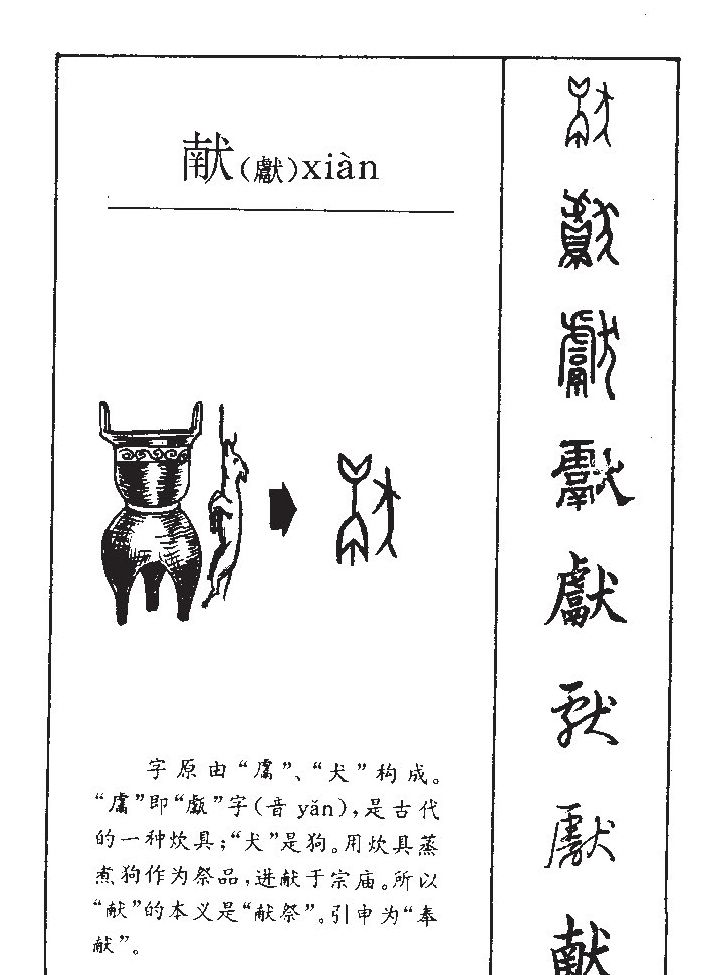 献(獻)xiàn
字原由“鬳”、“犬”构成。
“鬳”即“甗”字(音yǎn),是古代
的一种炊具;“犬”是狗。用炊具蒸
煮狗作为祭品,进献于宗庙。所以
“献”的本义是“献祭”。引申为“奉
献”。
獻
獻
獻
獻
獻
献